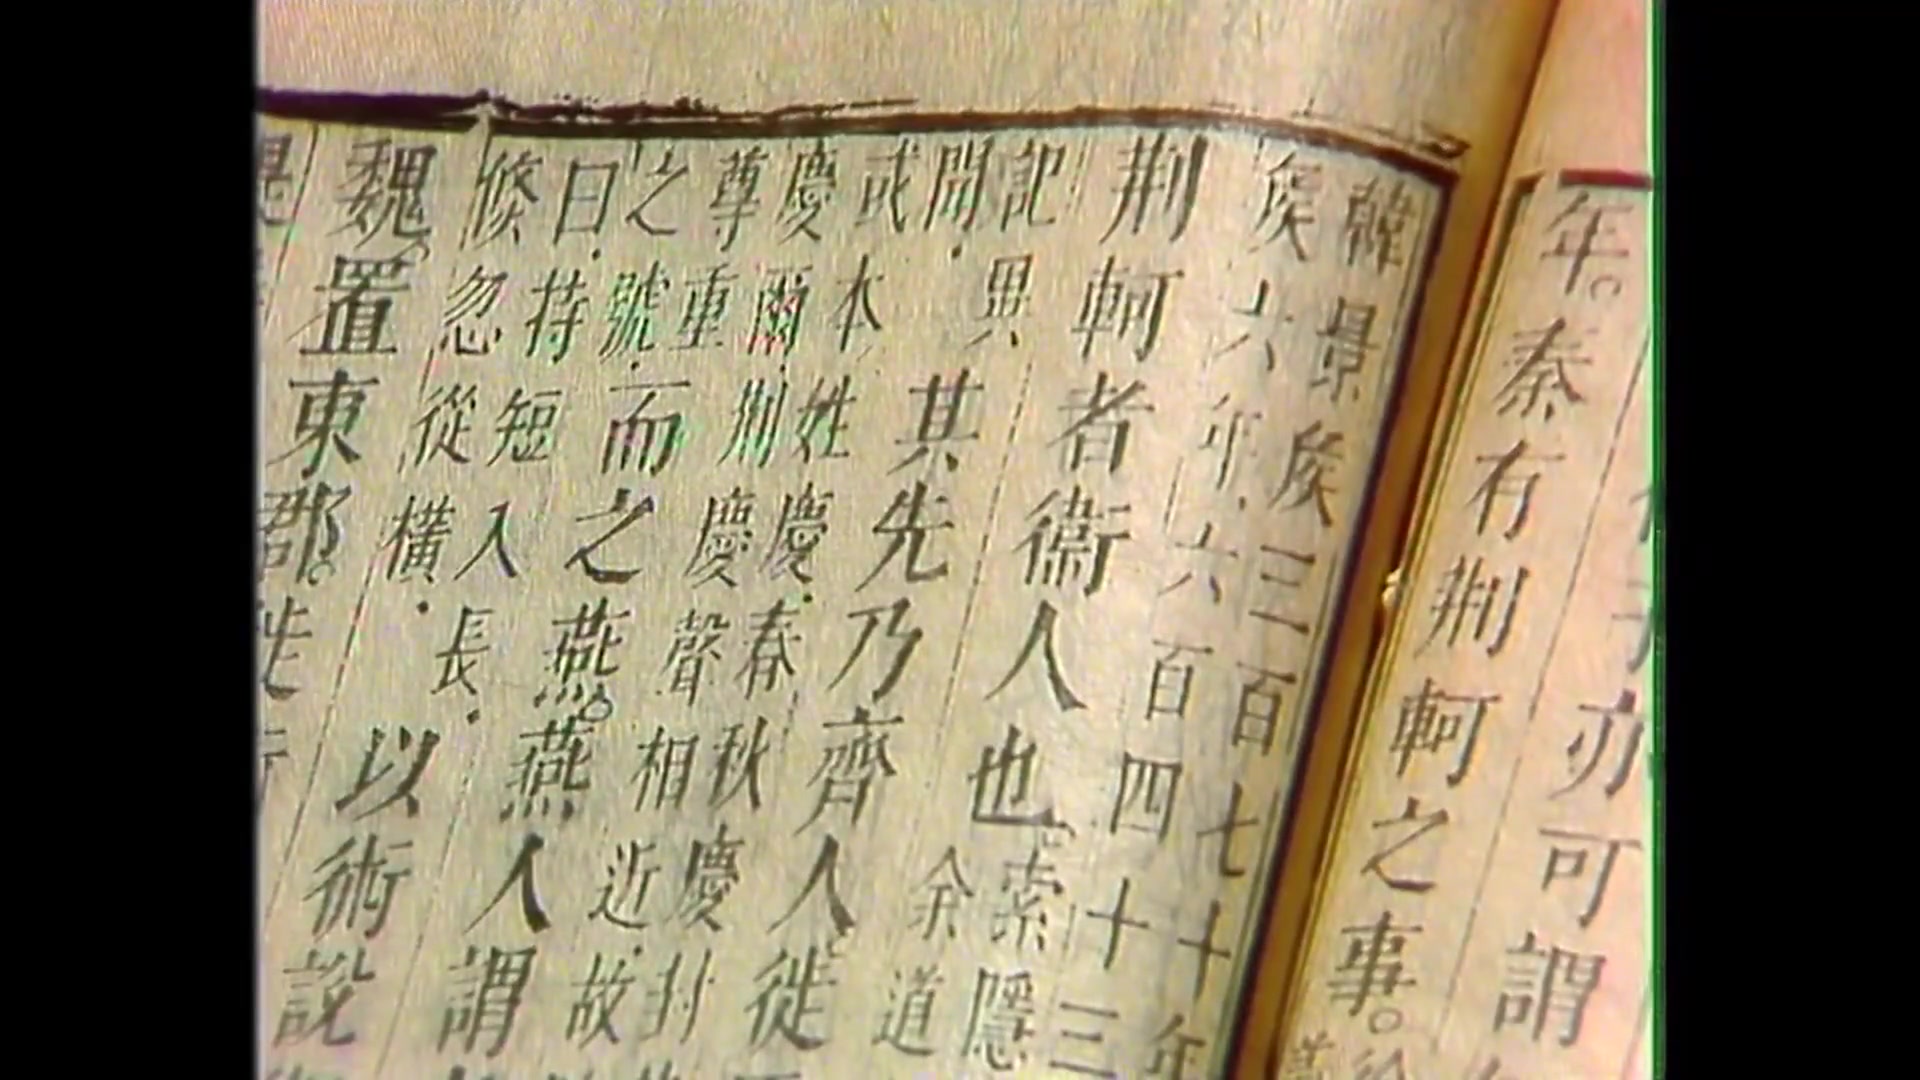 子亦可謂
年。秦有荊軻之事。
韓景矦三百七十年
矦六年六百四十三
荊軻者衞人也。索隱
余道
記異
聞其先乃齊人徙
或本姓慶春秋慶封
慶爾荊慶聲相近故
尊重
之號而之燕。燕人謂
曰持短入長
倐忽從橫以術說
魏置東郡。徙